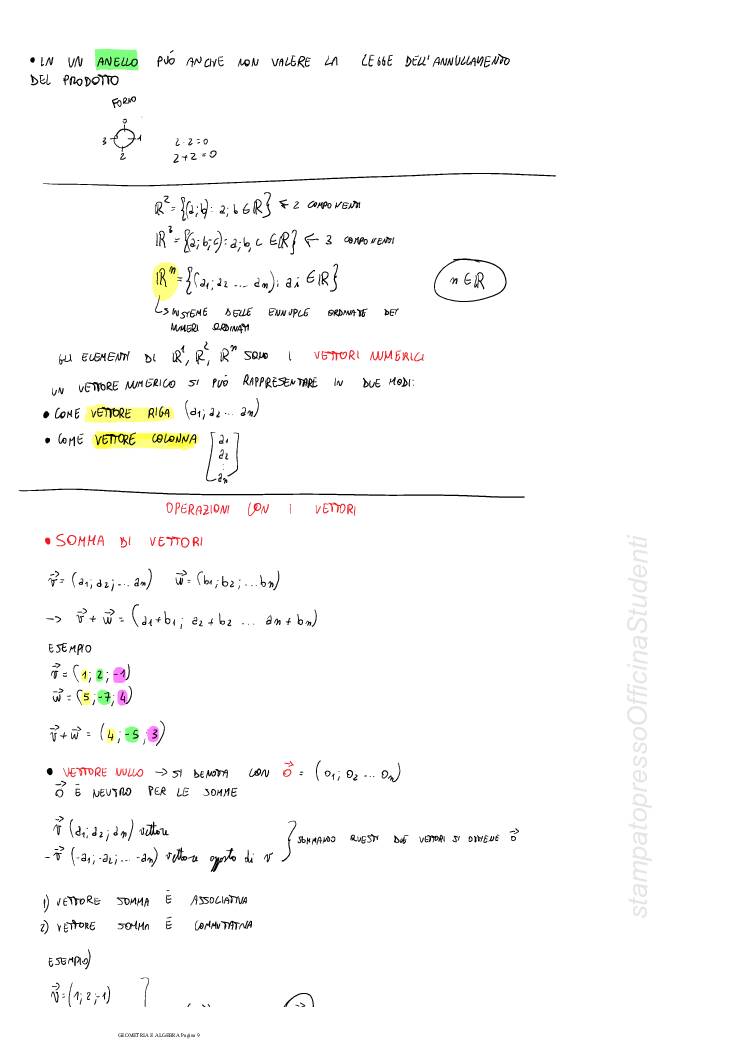 • IN UN ANELLO PUÓ ANCHE NON VALERE LA LEGGE DELL'ANNULLAMENTO
DEL PRODOTTO
FORNO
0
3 1
2
2·2=0
2+2=0
ℝ² = {(a;b): a;b ∈ ℝ} ← 2 COMPONENTI
ℝ³ = {(a;b;c): a;b,c ∈ ℝ} ← 3 COMPONENTI
ℝⁿ = {(a1; a2 ... an): ai ∈ ℝ}
n ∈ ℝ
↳ INSIEME DELLE ENNUPLE ORDINATE DEI
NUMERI ORDINATI
GLI ELEMENTI DI ℝ¹, ℝ², ℝⁿ SONO I VETTORI NUMERICI
UN VETTORE NUMERICO SI PUÓ RAPPRESENTARE IN DUE MODI:
• COME VETTORE RIGA (a1; a2 ... an)
• COME VETTORE COLONNA [a1
a2
⋮
an]
OPERAZIONI CON I VETTORI
• SOMMA DI VETTORI
v⃗ = (a1; a2; ... an) w⃗ = (b1; b2; ... bn)
→ v⃗ + w⃗ = (a1+b1; a2+b2 ... an+bn)
ESEMPIO
v⃗ = (1; 2; -1)
w⃗ = (5; -7; 4)
v⃗ + w⃗ = (4; -5; 3)
• VETTORE NULLO → SI DENOTA CON 0⃗ = (01; 02 ... 0n)
0⃗ É NEUTRO PER LE SOMME
v⃗ (a1; a2; an) vettore
- v⃗ (-a1; -a2; ... -an) vettore opposto di v
} SOMMANDO QUESTI DUE VETTORI SI OTTIENE 0⃗
1) VETTORE SOMMA É ASSOCIATIVA
2) VETTORE SOMMA É COMMUTATIVA
ESEMPIO)
v⃗ = (1; 2; -1)
GEOMETRIA E ALGEBRA Pagina 9
stampatopressoOfficinaStudenti